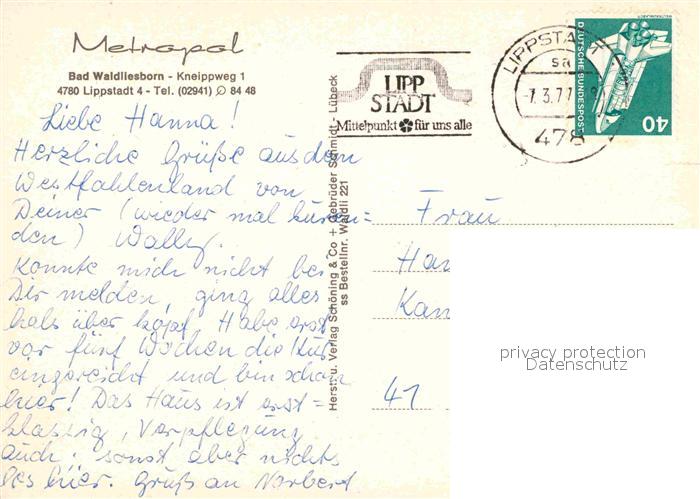 Metropol
Bad Waldliesborn - Kneippweg 1
4780 Lippstadt 4 - Tel. (02941) 8 84 48
Liebe Hanna!
Herzliche Grüße aus dem
Westfahlenland von
Deiner (wieder mal kuren=
den) Wally.
Konnte mich nicht bei
Dir melden, ging alles
hals über kopf. Habe erst
vor fünf Wochen die Kur
eingereicht und bin schon
hier! Das Haus ist erst=
klassig, Verpflegung
auch. sonst aber nichts
los hier. Gruß an Norbert
Herst. u. Verlag Schöning & Co + Gebrüder Schmidt - Lübeck
ss Bestellnr. Waldli 221
LIPP
STADT
Mittelpunkt für uns alle
LIPPSTADT
sa
-7.3.77
478
DEUTSCHE BUNDESPOST
40
Frau
Han
Kan
41
privacy protection
Datenschutz